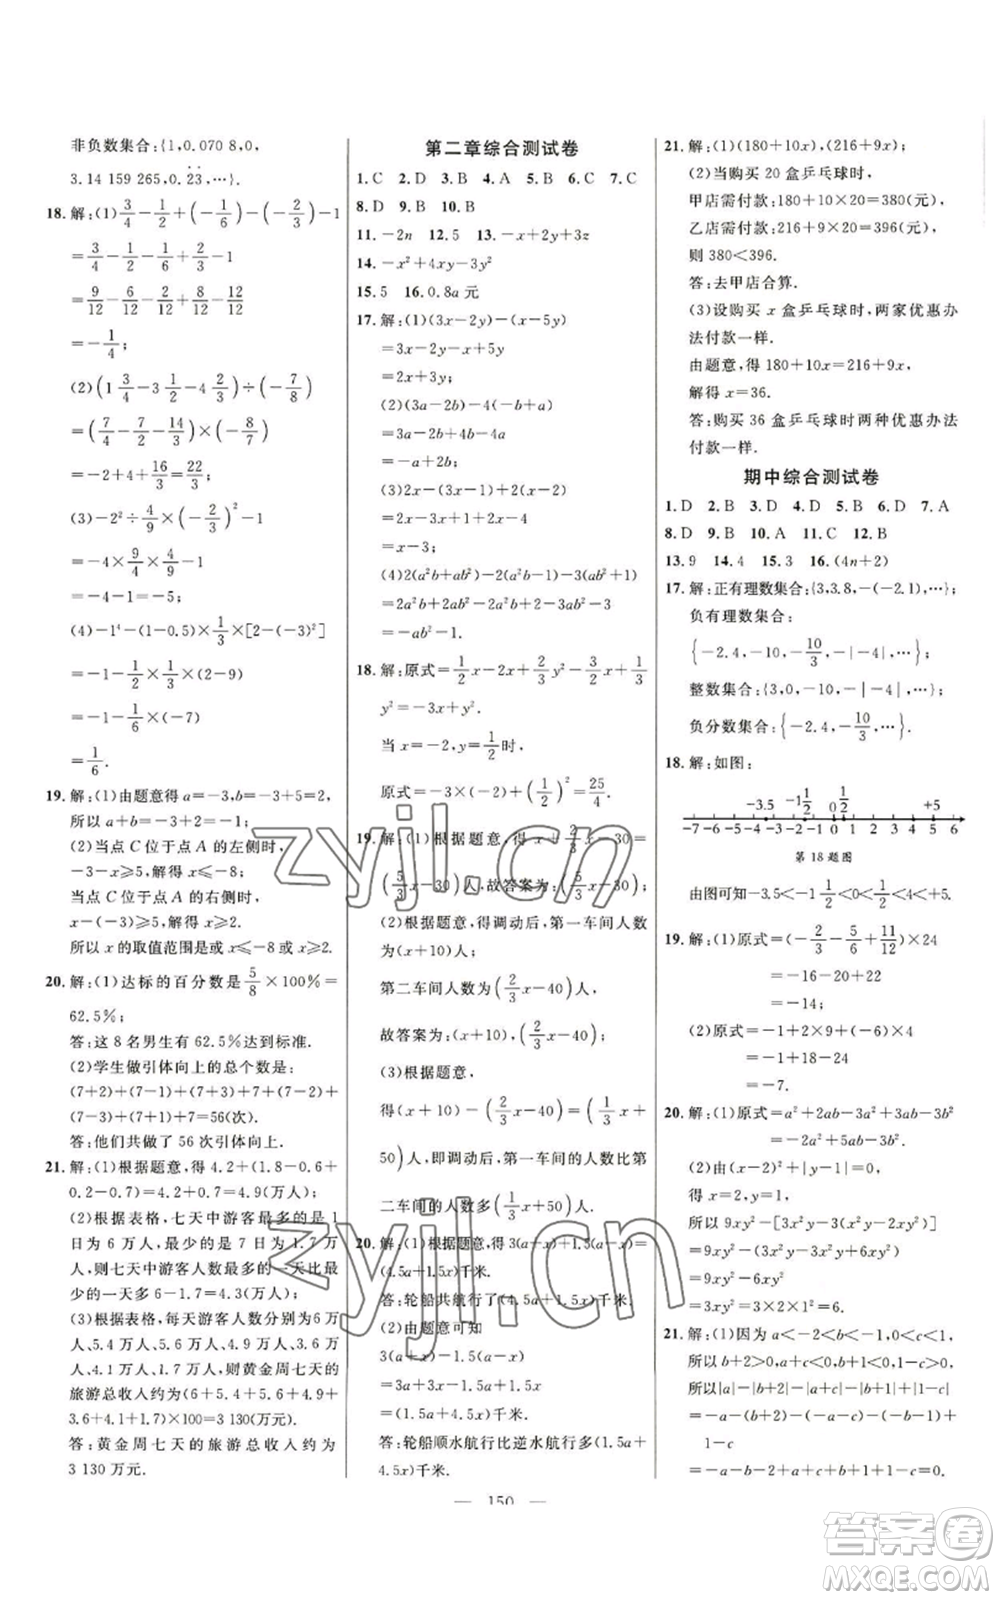 非负数集合:{1,0.070 8,0,
3.14 159 265,0.2̇3̇,…}.
18. 解:(1)3/4-1/2+(-1/6)-(-2/3)-1
=3/4-1/2-1/6+2/3-1
=9/12-6/12-2/12+8/12-12/12
=-1/4;
(2)(1 3/4-3 1/2-4 2/3)÷(-7/8)
=(7/4-7/2-14/3)×(-8/7)
=-2+4+16/3=22/3;
(3)-2²÷4/9×(-2/3)²-1
=-4×9/4×4/9-1
=-4-1=-5;
(4)-1⁴-(1-0.5)×1/3×[2-(-3)²]
=-1-1/2×1/3×(2-9)
=-1-1/6×(-7)
=1/6.
19. 解:(1)由题意得 a=-3,b=-3+5=2,
所以 a+b=-3+2=-1;
(2)当点 C 位于点 A 的左侧时,
-3-x≥5,解得 x≤-8;
当点 C 位于点 A 的右侧时,
x-(-3)≥5,解得 x≥2.
所以 x 的取值范围是或 x≤-8 或 x≥2.
20. 解:(1)达标的百分数是5/8×100%=
62.5%;
答:这 8 名男生有 62.5%达到标准.
(2)学生做引体向上的总个数是:
(7+2)+(7-1)+(7+0)+(7+3)+
(7-2)+(7-3)+(7+1)+7=56(次).
答:他们共做了 56 次引体向上.
21. 解:(1)根据题意,得 4.2+(1.8-0.6+
0.2-0.7)=4.2+0.7=4.9(万人);
(2)根据表格,七天中游客最多的是 1
日为 6 万人,最少的是 7 日为 1.7 万
人,则七天中游客人数最多的一天比最
少的一天多 6-1.7=4.3(万人);
(3)根据表格,每天游客人数分别为6万
人,5.4 万人,5.6 万人,4.9 万人,3.6 万
人,4.1 万人,1.7 万人,则黄金周七天的
旅游总收入约为(6+5.4+5.6+4.9+
3.6+4.1+1.7)×100=3 130(万元).
答:黄金周七天的旅游总收入约为
3 130 万元.
第二章综合测试卷
1. C 2. D 3. B 4. A 5. B 6. C 7. C
8. D 9. B 10. B
11. -2n 12. 5 13. -x+2y+3z
14. -x²+4xy-3y²
15. 5 16. 0.8a 元
17. 解:(1)(3x-2y)-(x-5y)
=3x-2y-x+5y
=2x+3y;
(2)(3a-2b)-4(-b+a)
=3a-2b+4b-4a
=-a+2b;
(3)2x-3(x+1)+2x
=2x-3x+1+2x-4
=x-3;
(4)2(a²b+ab²)-2(a²b-1)-3(ab²+1)
=2a²b+2ab²-2a²b+2-3ab²-3
=-ab²-1.
18. 解:原式=1/2x-2x+2/3y²-3/2x+1/3
y²=-3x+y².
当 x=-2,y=1/2时,
原式=-3×(-2)+(1/2)²=25/4.
19. 解:(1)根据题意,得 x+2/3x-30=
(5/3x-30)人,故答案为:(5/3x-30)人;
(2)根据题意,得调动后,第一车间人数为
(x+10)人;
第二车间人数为(2/3x-40)人,
故答案为:(x+10),(2/3x-40);
(3)根据题意,
得(x+10)-(2/3x-40)=(1/3x+
50)人,即调动后,第一车间的人数比第
二车间的人数多(1/3x+50)人.
20. 解:(1)根据题意,得 3(a+x)+1.5(a-x)=
(4.5a+1.5x)千米.
答:轮船共航行了(4.5a+1.5x)千米.
(2)由题意可知
3(a+x)-1.5(a-x)
=3a+3x-1.5a+1.5x
=(1.5a+4.5x)千米.
答:轮船顺水航行比逆水航行多(1.5a+
4.5x)千米.
21. 解:(1)(180+10x),(216+9x);
(2)当购买 20 盒乒乓球时,
甲店需付款:180+10×20=380(元),
乙店需付款:216+9×20=396(元),
则 380<396.
答:去甲店合算.
(3)设购买 x 盒乒乓球时,两家优惠办
法付款一样.
由题意,得 180+10x=216+9x,
解得 x=36.
答:购买 36 盒乒乓球时两种优惠办法
付款一样.
期中综合测试卷
1. D 2. B 3. D 4. D 5. B 6. D 7. A
8. D 9. B 10. A 11. C 12. B
13. 9 14. 4 15. 3 16. (4n+2)
17. 解:正有理数集合:{3,3.8,-(-2.1),…};
负有理数集合:
{-2.4,-10,-10/3,-|-4|,…};
整数集合:{3,0,-10,-|-4|,…};
负分数集合:{-2.4,-10/3,…}.
18. 解:如图:
-3.5 -1 1/2 0 1/2 +5
-7 -6 -5 -4 -3 -2 -1 0 1 2 3 4 5 6
第 18 题图
由图可知-3.5<-1 1/2<0<1/2<+5.
19. 解:(1)原式=(-2/3-5/6+11/12)×24
=-16-20+22
=-14;
(2)原式=-1+2×9+(-6)×4
=-1+18-24
=-7.
20. 解:(1)原式=a²+2ab-3a²+3ab-3b²
=-2a²+5ab-3b²;
(2)由(x-2)²+|y-1|=0,
得 x=2,y=1,
所以 9xy²-[3x²y-(3x²y-xy²)]
=9xy²-3x²y+3x²y-xy²
=9xy²-6xy²
=3xy²=3×2×1=6.
21. 解:(1)因为 a<-2<b<-1<c<1,
所以 b+2>0,a-c<0,1-c>0,
所以|a|-|b+2|+|a-c|+|1-c|
=-a-(b+2)-(a-c)+(b+2)+
1-c
=-a-b-2-a+c+b+2+1-c
=-2a+1.
— 150 —
zyjl.cn
zyjl.cn
答案圈
MXQE.COM